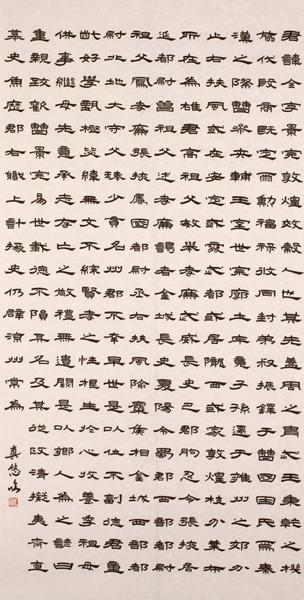 君諱全字景完敦煌效穀人也其先蓋周之胄武王秉乾之機
翦伐殷商既定爾勳福祿攸同封弟叔振鐸于曹國因氏焉秦
漢之際曹參夾輔王室世宗廓土斥竟子孫遷于雍州之郊分
止右扶風或在安定或處武都或居隴西或家敦煌枝分葉布
所在為雄君高祖父敏舉孝廉武威長史巴郡朐忍令張掖居
延都尉曾祖父述孝廉謁者金城長史夏陽令蜀郡西部都尉
祖父鳳孝廉張掖屬國都尉丞右扶風隃麋侯相金城西部都
尉北地大守父琫少貫名州郡不幸早世是以位不副德君童
齔好學甄極毖緯無文不綜賢孝之性根生於心收養季祖母
供事繼母先意承志存亡之敬禮無遺闕是以鄉人為之諺曰
重親致歡曹景完易世載德不隕其名及其從政清擬夷齊直
慕史魚歷郡右職上計掾史仍辟涼州常為